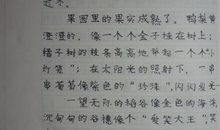 过不。
果园里的果实成熟了。鸭梨黄
澄澄的，像一个个金子挂在树上；
橘子树的枝条高高低举起一个个“小
灯笼”；在太阳光的照射下，一串
串葡萄像紫色的“珍珠”，闪闪发光
一望无际的稻谷像金色的海洋
沉甸甸的谷穗像个“爱笑大王”，笑